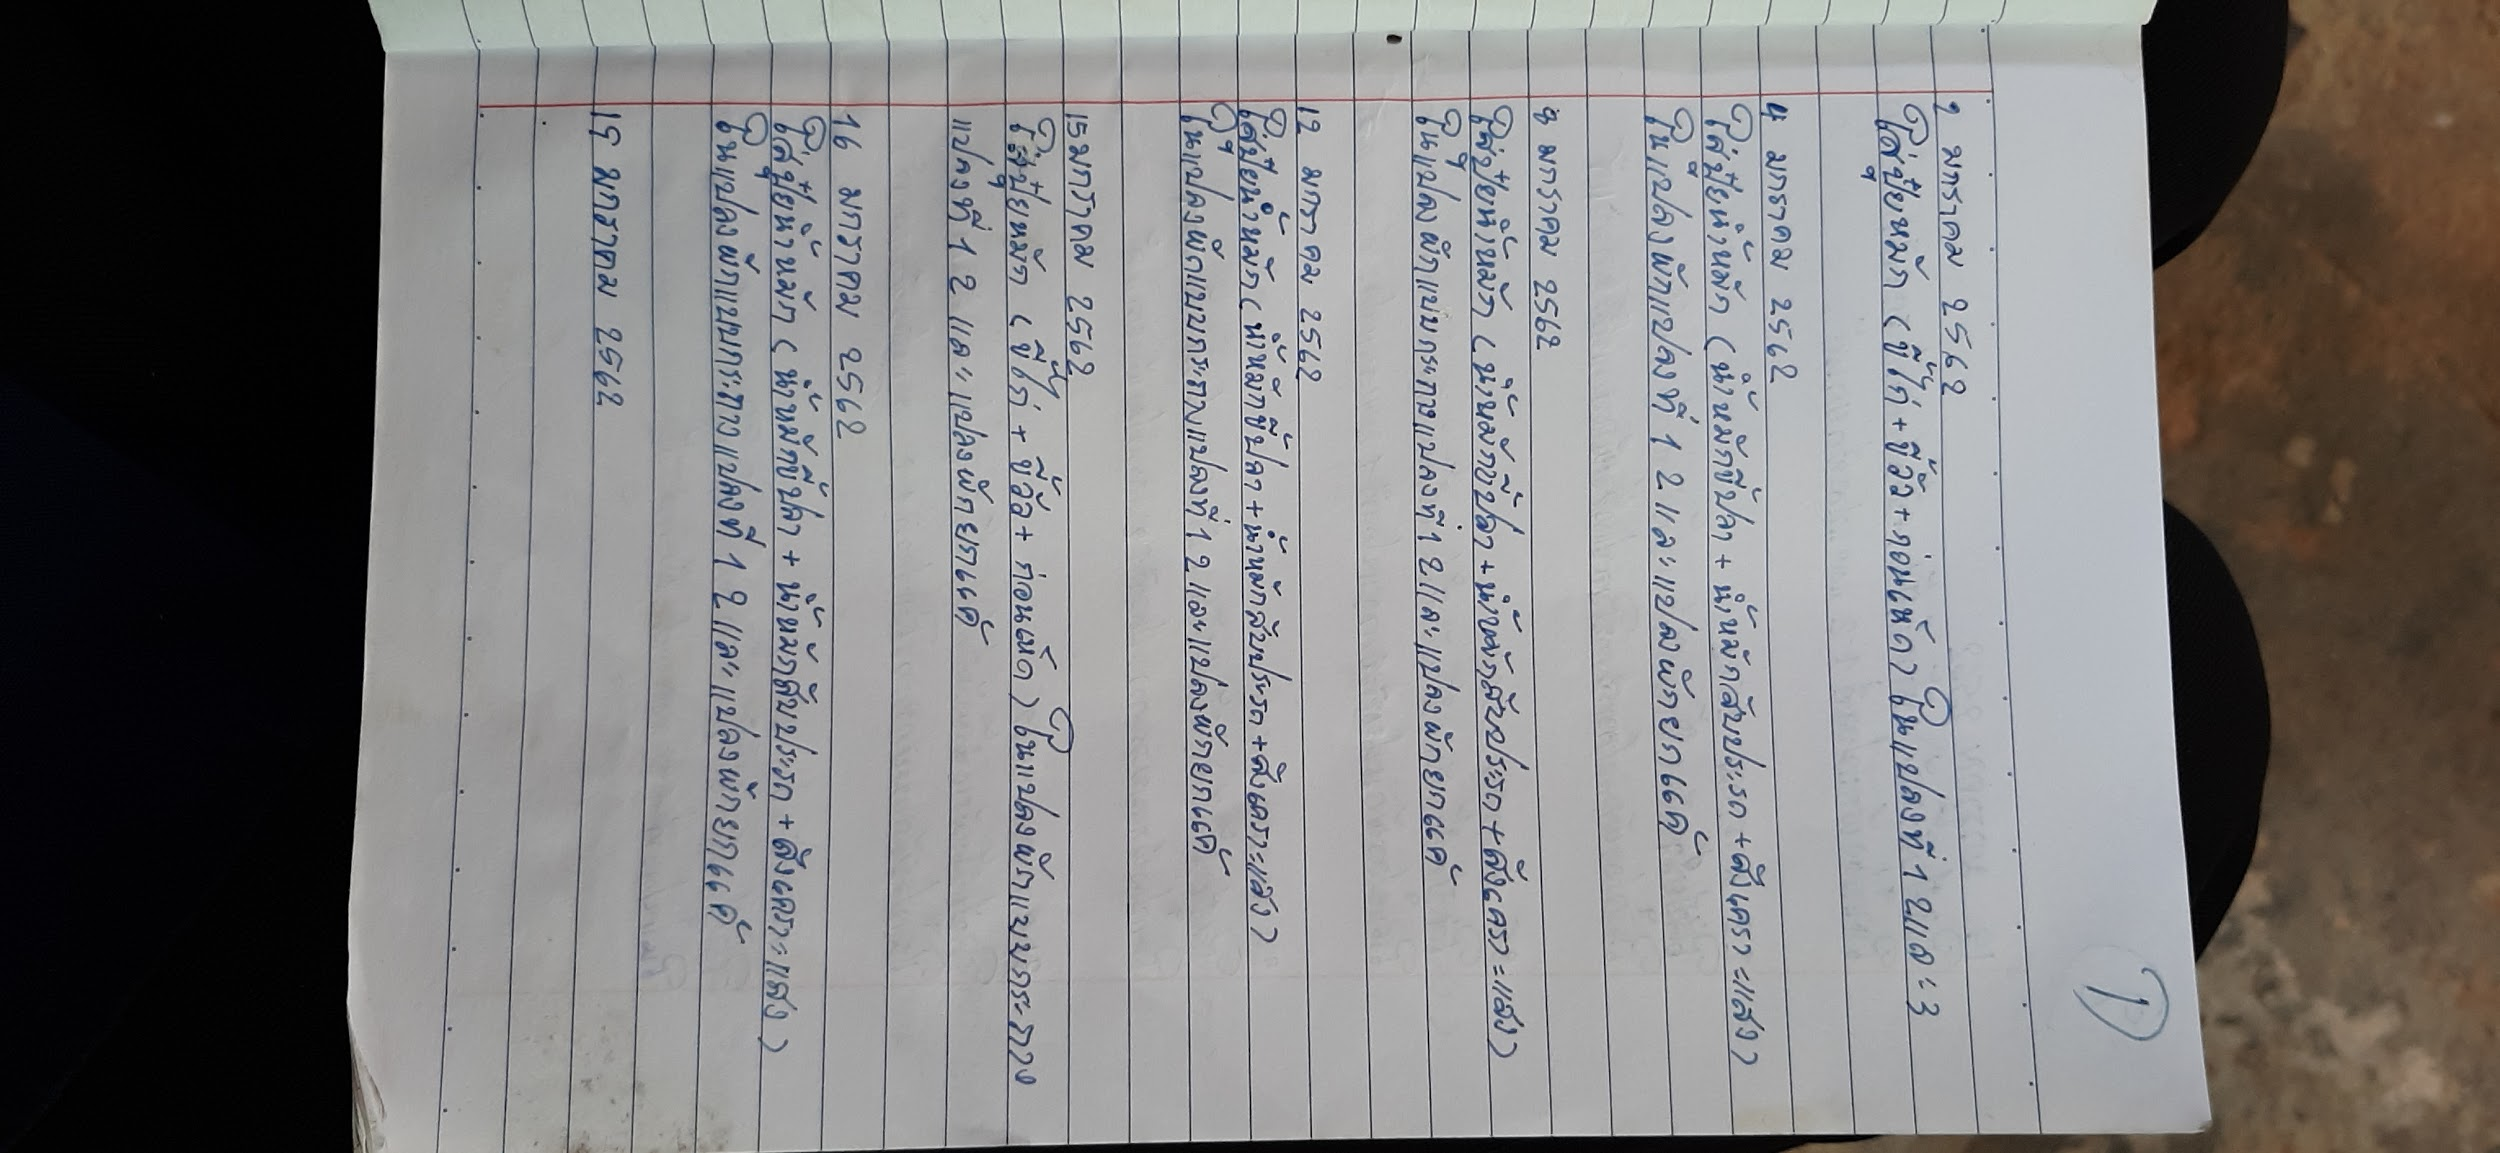 1
2 มกราคม 2562
ใส่ปุ๋ยหมัก (ขี้ไก่ + ขี้วัว + ก่อนเห็ด) ในแปลงที่ 1 2 และ 3
4 มกราคม 2562
ใส่ปุ๋ยน้ำหมัก (น้ำหมักขี้ปลา + น้ำหมักสับปะรด + สังเคราะแสง)
ในแปลงผักแปลงที่ 1 2 และแปลงผักยกแค้
8 มกราคม 2562
ใส่ปุ๋ยน้ำหมัก (น้ำหมักขี้ปลา + น้ำหมักสับปะรด + สังเคราะแสง)
ในแปลงผักแบบกระกางแปลงที่ 1 2 และแปลงผักยกแค้
12 มกราคม 2562
ใส่ปุ๋ยน้ำหมัก (น้ำหมักขี้ปลา + น้ำหมักสับประรด + สังเคราะแสง)
ในแปลงผักแบบกระกางแปลงที่ 1 2 และแปลงผักยกแค้
15 มกราคม 2562
ใส่ปุ๋ยหมัก (ขี้ไก่ + ขี้วัว + ก่อนเห็ด) ในแปลงผักแบบกระกาง
แปลงที่ 1 2 และแปลงผักยกแค้
16 มกราคม 2562
ใส่ปุ๋ยน้ำหมัก (น้ำหมักขี้ปลา + น้ำหมักสับประรด + สังเคราะแสง)
ในแปลงผักแบบกระกางแปลงที่ 1 2 และแปลงผักยกแค้
19 มกราคม 2562